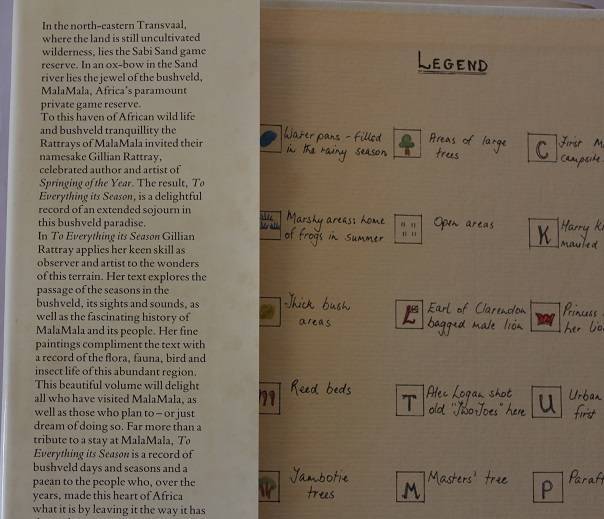 In the north-eastern Transvaal,
where the land is still uncultivated
wilderness, lies the Sabi Sand game
reserve. In an ox-bow in the Sand
river lies the jewel of the bushveld,
MalaMala, Africa's paramount
private game reserve.
To this haven of African wild life
and bushveld tranquillity the
Rattrays of MalaMala invited their
namesake Gillian Rattray,
celebrated author and artist of
Springing of the Year. The result, To
Everything its Season, is a delightful
record of an extended sojourn in
this bushveld paradise.
In To Everything its Season Gillian
Rattray applies her keen skill as
observer and artist to the wonders
of this terrain. Her text explores the
passage of the seasons in the
bushveld, its sights and sounds, as
well as the fascinating history of
MalaMala and its people. Her fine
paintings compliment the text with
a record of the flora, fauna, bird and
insect life of this abundant region.
This beautiful volume will delight
all who have visited MalaMala, as
well as those who plan to – or just
dream of doing so. Far more than a
tribute to a stay at MalaMala, To
Everything its Season is a record of
bushveld days and seasons and a
paean to the people who, over the
years, made this heart of Africa
what it is by leaving it the way it has
LEGEND
Water pans - filled
in the rainy season
Areas of large
trees
C
First M
campsite
Marshy areas: home
of frogs in summer
Open areas
K
Harry K
mauled
Thick bush
areas
L
Earl of Clarendon
bagged male lion
Princess
her lio
Reed beds
T
Alec Logan shot
old "Two Toes" here
U
Urban
first
Tambotie
trees
M
Masters' tree
P
Paraf